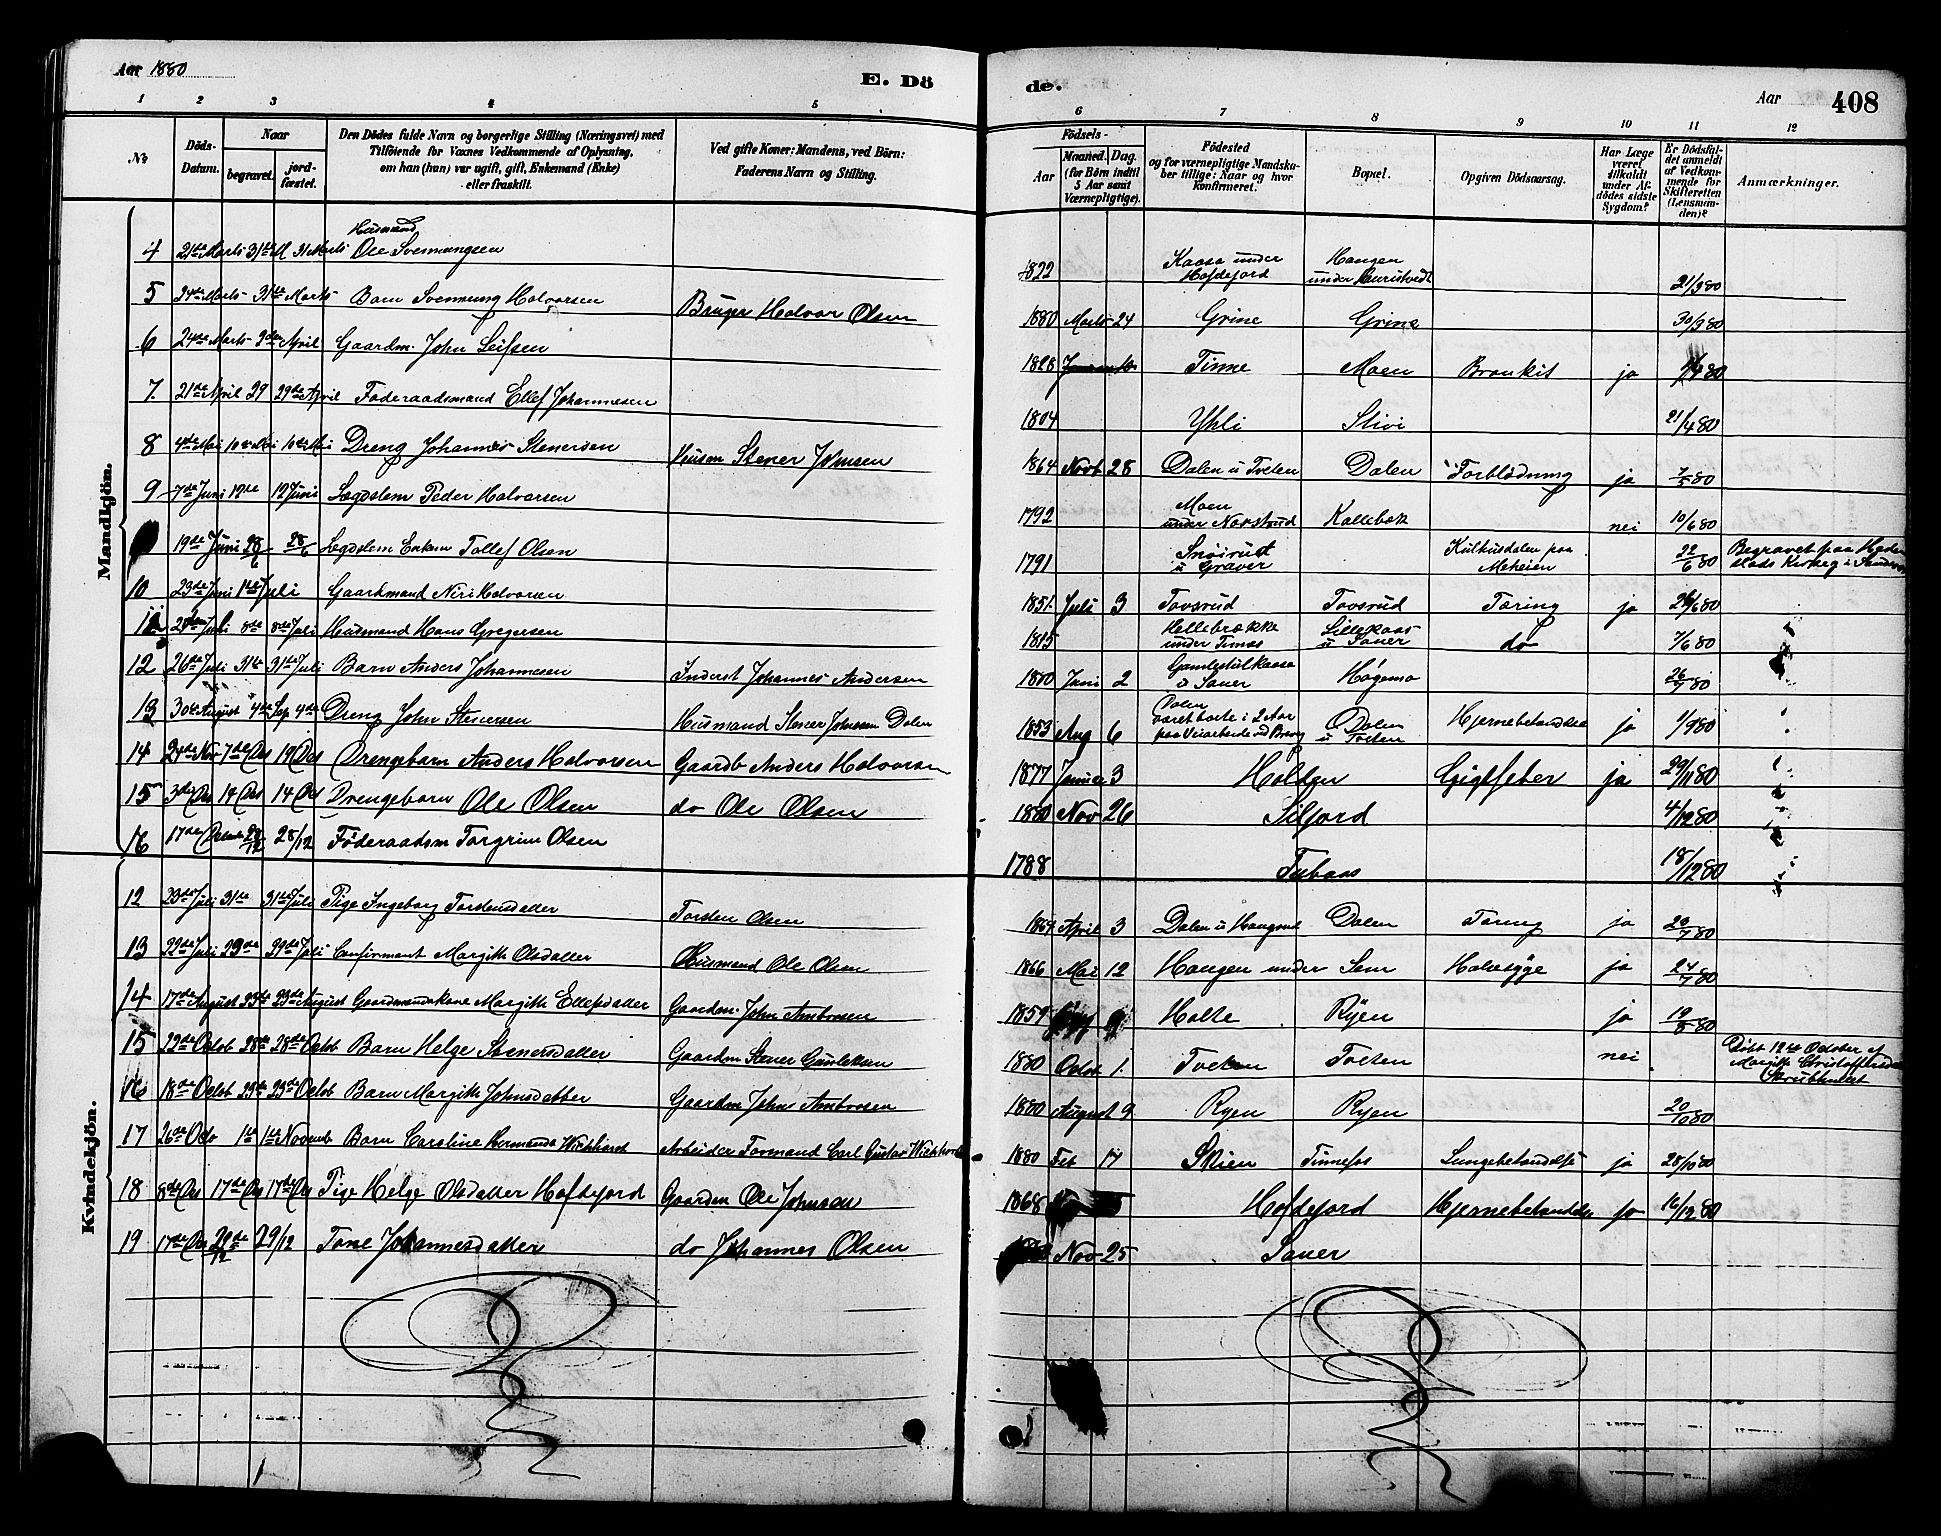 Aar 1880
E. Dö
de.
Aar
408
1 2 3 4 5
6 7 8 9 10 11 12
No
Döds-Datum.
Naar
begravet.
jord-fæstet.
Den Dödes fulde Navn og borgerlige Stilling (Næringsvei) med
Tilföiende for Voxnes Vedkommende af Oplysning,
om han (hun) var ugift, gift, Enkemand (Enke)
eller fraskilt.
Ved gifte Koner: Mandens, ved Börn:
Faderens Navn og Stilling.
Födsels-
Aar
Maaned. Dag.
(for Börn indtil
5 Aar samt
Værnepligtige).
Födested
og for værnepligtige Mandska-
ber tillige: Naar og hvor
Konfirmeret.
Bopæl.
Opgiven Dödsaarsag.
Har Læge
været
tilkaldt
under Af-
dödes sidste
Sygdom?
Er Dödsfal-
det anmeldt
af Vedkom-
mende for
Skifteretten
(Lensman-
den)?
Anmærkninger.
Mandkjön.
4 21de Marts 31te M 31 Marts Husmand Ole Svenningsen 1822 Kaasa under Hofdefjord Haugen under 21/3 80
5 24de Marts 31te Marts Barn Svennung Halvorsen Bruger Halvor Olsen 1880 Marts 24 Grine Grine 30/3 80
6 24de Marts April Gaardm. John Leifsen 1828 Tinne Moen Bronkit ja
7. 21de April 29 29de April Föderaadsmand Ellef Johannesen 1804 Yhli Stivi 21/4 80
8 4de Mai 10de Mai 10de Mai Dreng Johannes Stenersen Husm Stener Johnsen 1864 Novb 28 Dalen u Tveten Dalen Forblödning ja 7/5 80
9 7de Juni 12te 12 Juni Lægdslem Peder Halvorsen 1792 Moen under Norstrud Kallebæk nei 10/6 80
19de Juni 28/6 28/6 Legdslem Enkem Tollef Olsen 1791 u Graver paa Meheien 22/6 80 Begravet paa
10 23de Juni 1te Juli Gaardmand Niri Halvorsen 1851. Juli 3 Tovsrud Tovsrud Tæring ja 26/6 80
11 8de 8de Juli Husmand Hans Gregersen 1815 Hellebrække under Tinnes Lillekaas u Sauer do
12 26de Juli 31te 31te Juli Barn Anders Johannesen Inderst Johannes Andersen 1880 Juni 2 Gamlestulkaasa u Sauer Högemo 26/7 80
13 30te August 4de Sep 4de Dreng John Stenersen Husmand Stener Johnsen Dalen 1853 Aug 6 Dalen været borte i 2 Aar paa Veiarbeide ved Brevig Dalen u Tveten Hjernebetændelse ja 1/9 80
14 24de Nov 7de Des 19 Des Drengebarn Anders Halvorsen Gaardb Anders Halvorsen 1877 Januar 3 Holtan Gigtfeber ja 29/11 80
15 3die Des 14 Des 14 Des Drengebarn Ole Olsen do Ole Olsen 1880 Nov 26 Silfjord 4/12 80
16 17de Desemb 28/12 28/12 Föderaadsm Torgrim Olsen 1788 Tubaas 18/12 80
Kvindekjön.
12 23de Juli 31te 31te Juli Pige Ingeborg Torstensdatter Torsten Olsen April 3 Dalen u Haugerud Dalen Tæring ja 20/7 80
13 22de Juli 29de 29de Juli Confirmant Margith Olsdatter Husmand Ole Olsen 1866 Mai 12 Haugen under Sem Halvsyge ja 24/7 80
14 17de August 23de 23de August Gaardmandskone Margith Ellefsdatter Gaardm. John Ambrosen Holte Ryen ja 19/8 80
15 22de Octob 28de 28de Octob Barn Helge Stenersdatter Gaardm Stener Gunleiksen 1880 Octob 1. Tveten Tveten nei Döbt 12te October af Margith Christoffersdatter
16 18de Octob 23de 23de Octob Barn Margith Johnsdatter Gaardm John Ambrosen 1880 August 9 Ryen Ryen 20/10 80
17 26de Octo 1te 1te Novemb Barn Caroline Hermanda Wiekhorst Arbeider Formand Carl Gustav Wiekhorst 1880 Feb 17 Skien Tinnefos Lungebetændelse ja 28/10 80
18 8de Des 17de Des 17de Des Pige Helge Olsdatter Hofdefjord Gaardm Ole Johnsen 1868 Hofdefjord Hjernebetændelse ja 16/12 80
19 17de Des 29de/12 29/12 Tone Johannesdatter do Johannes Olsen Nov 25 Sauer